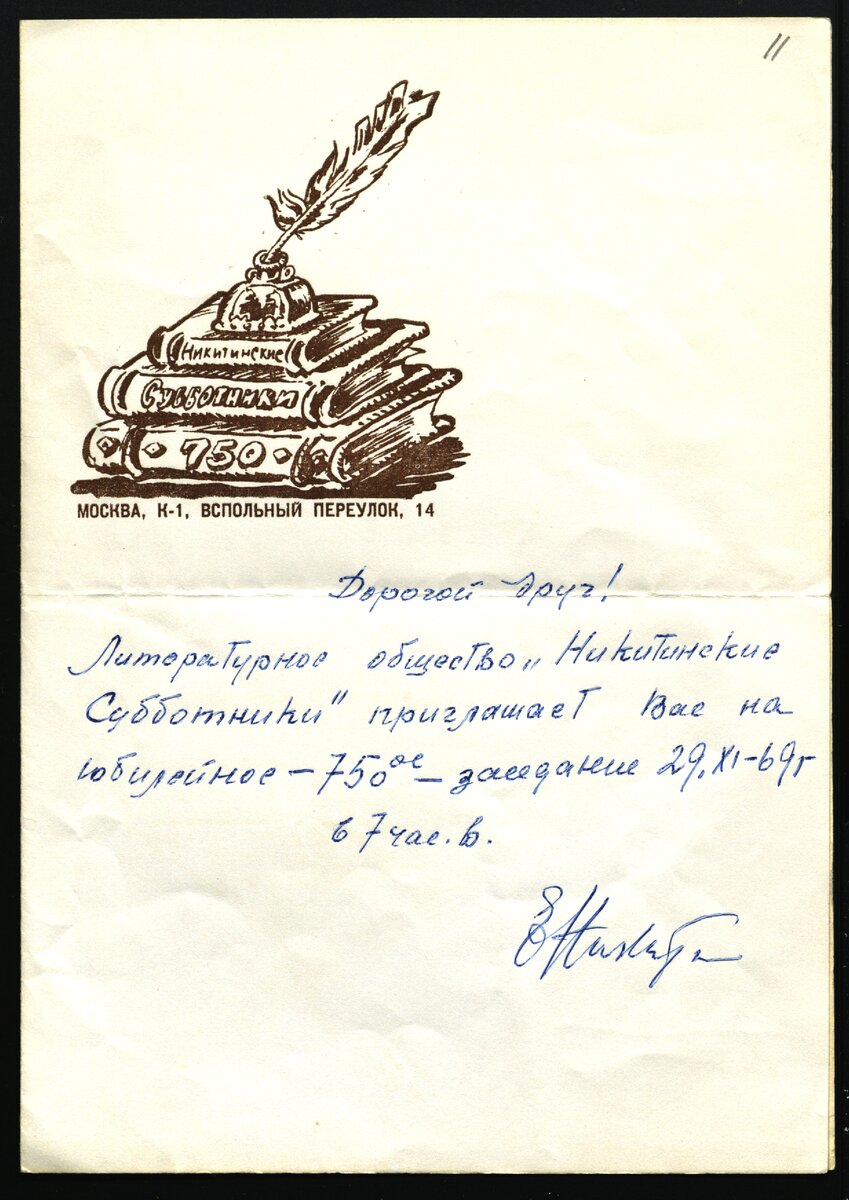 11
Никитинские
Субботники
750
МОСКВА, К-1, ВСПОЛЬНЫЙ ПЕРЕУЛОК, 14
Дорогой друг!
Литературное общество „Никитинские
Субботники" приглашает Вас на
юбилейное – 750ое – заседание 29.XI-69г
в 7 час. в.
ЕНикитин